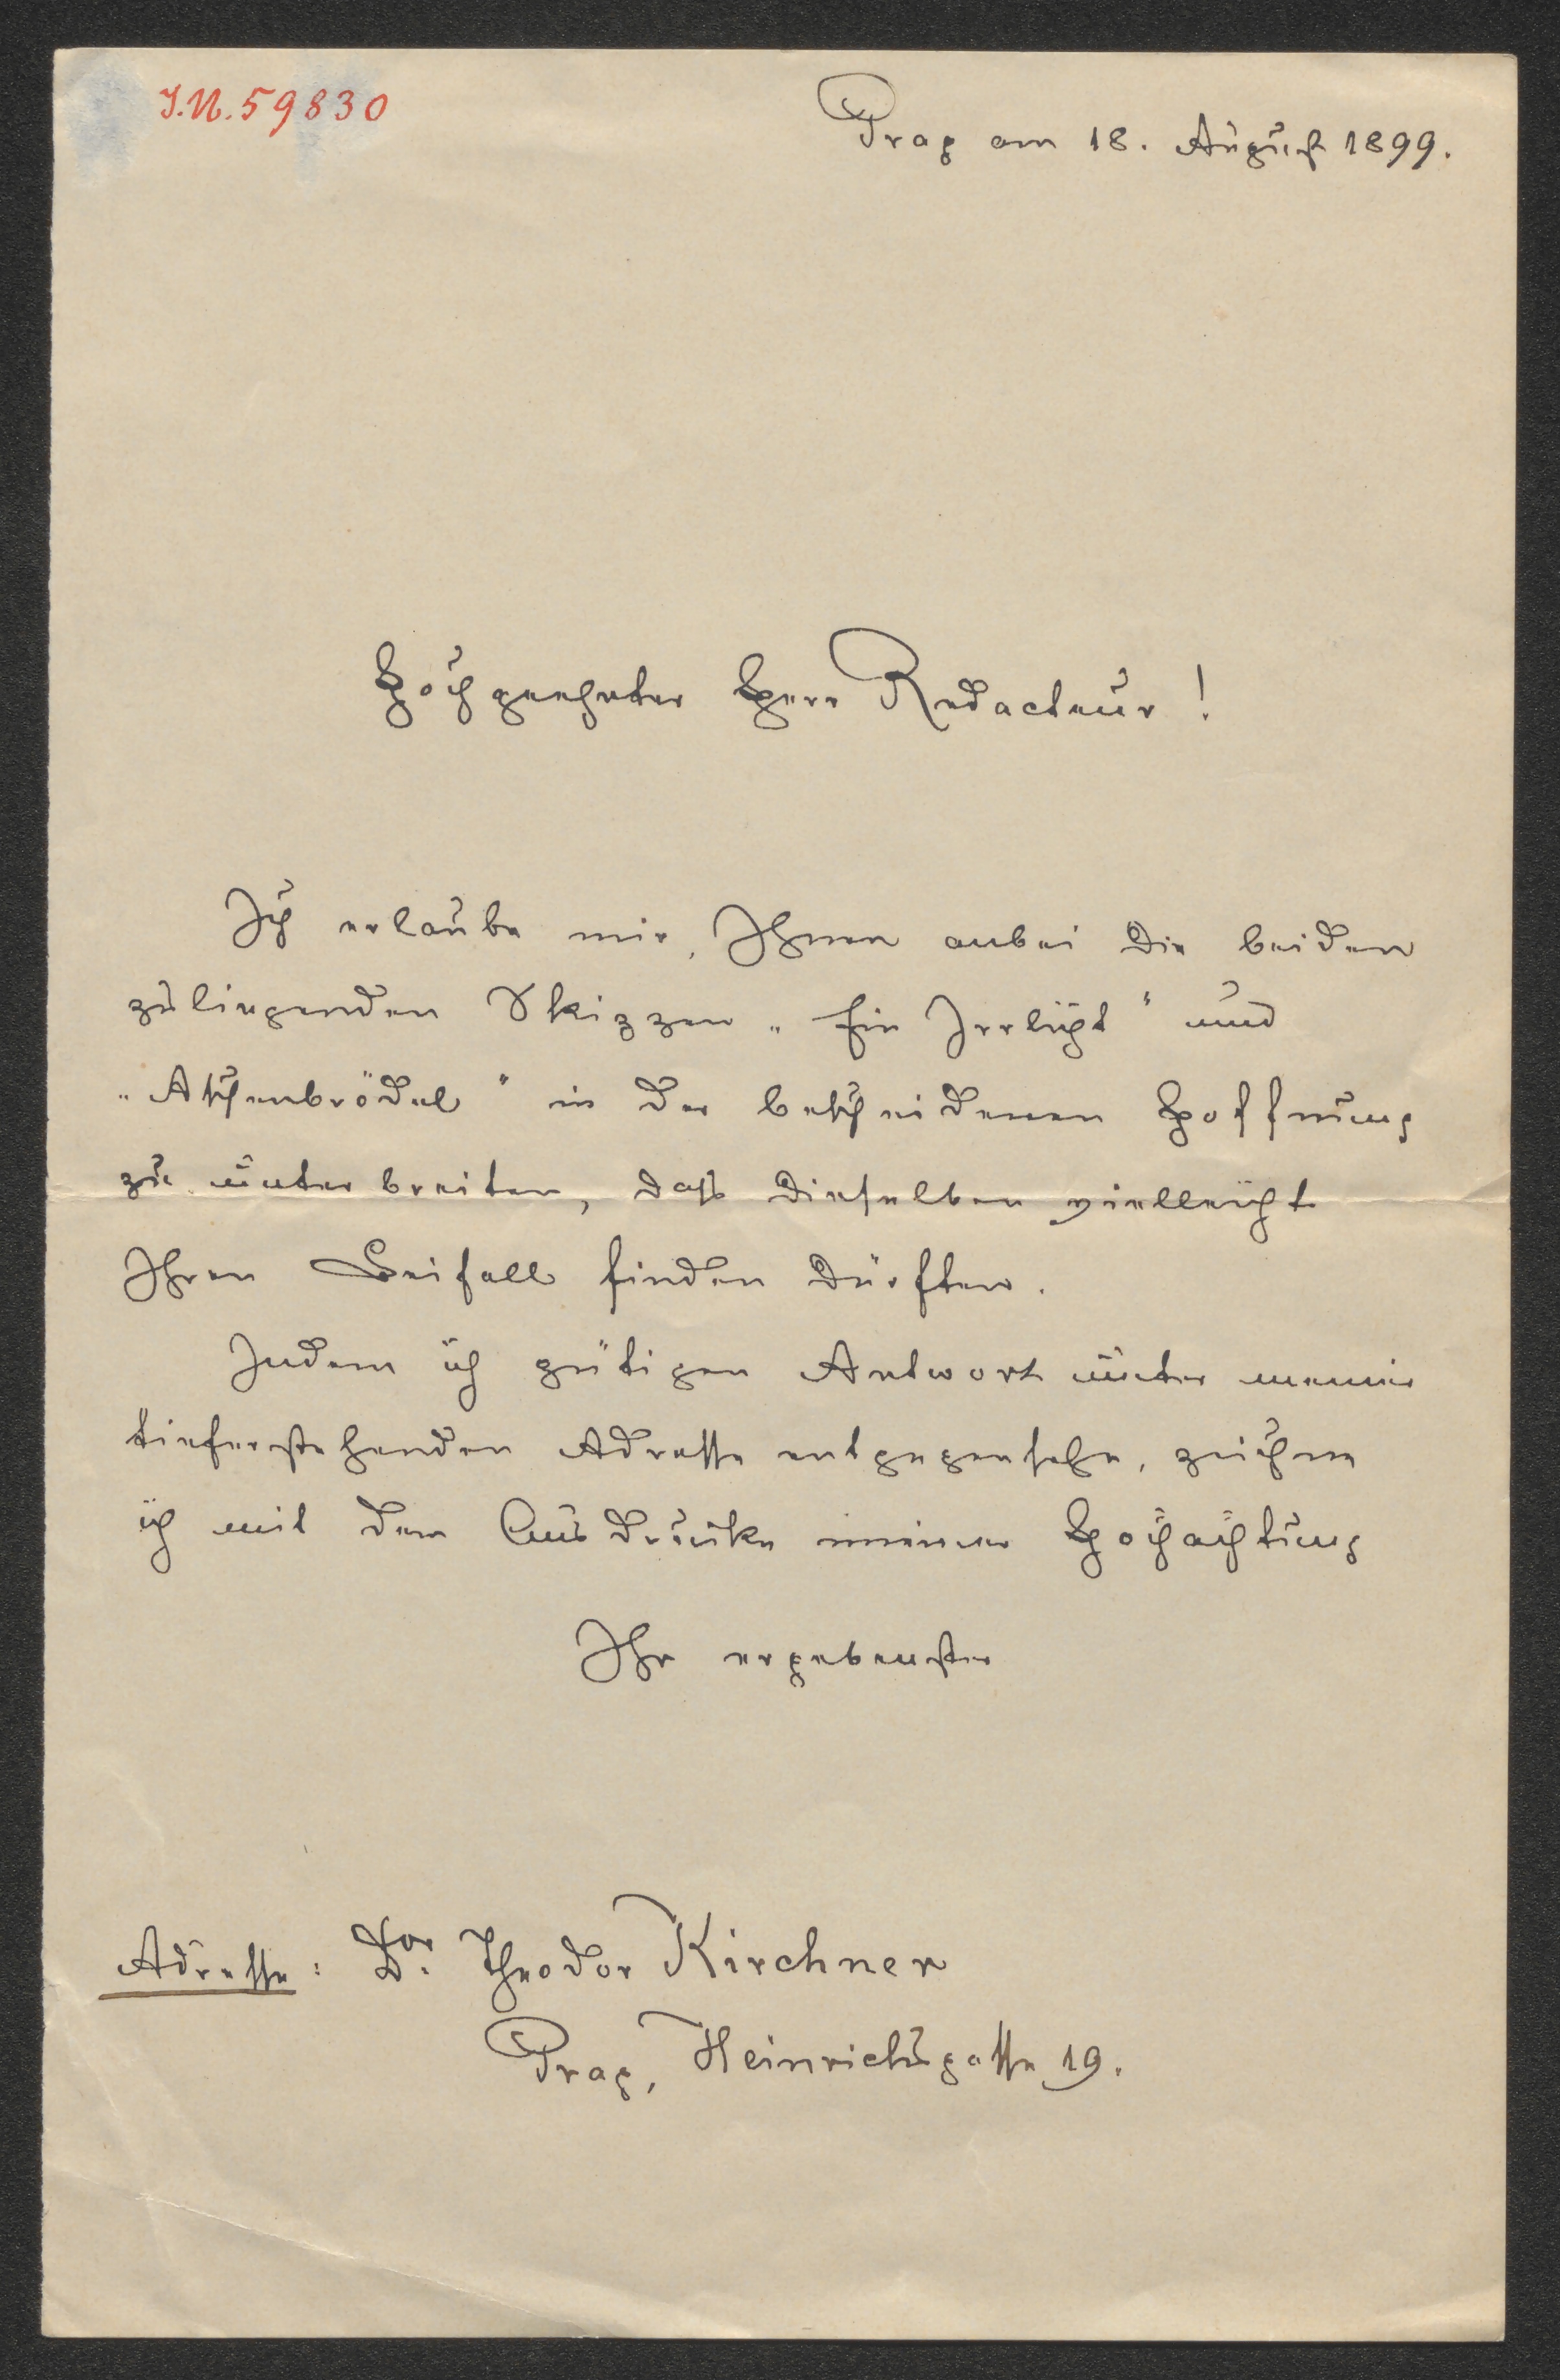 J.N. 59830
Prag am 18. August 1899.
Hochgeehrter Herr Redacteur!
Ich erlaube mir, Ihnen anbei die beiden
zuliegenden Skizzen „Ein Irrlicht" und
„Aschenbrödel" in der bescheidenen Hoffnung
zu unterbreiten, daß dieselben vielleicht
Ihren Beifall finden dürften.
Indem ich gütigen Antwort unter meiner
tieferstehenden Adresse entgegensehe, zeichne
ich mit dem Ausdrucke meiner Hochachtung
Ihr ergebenster
Adresse: Dor. Theodor Kirchner
Prag, Heinrichsgasse 19.